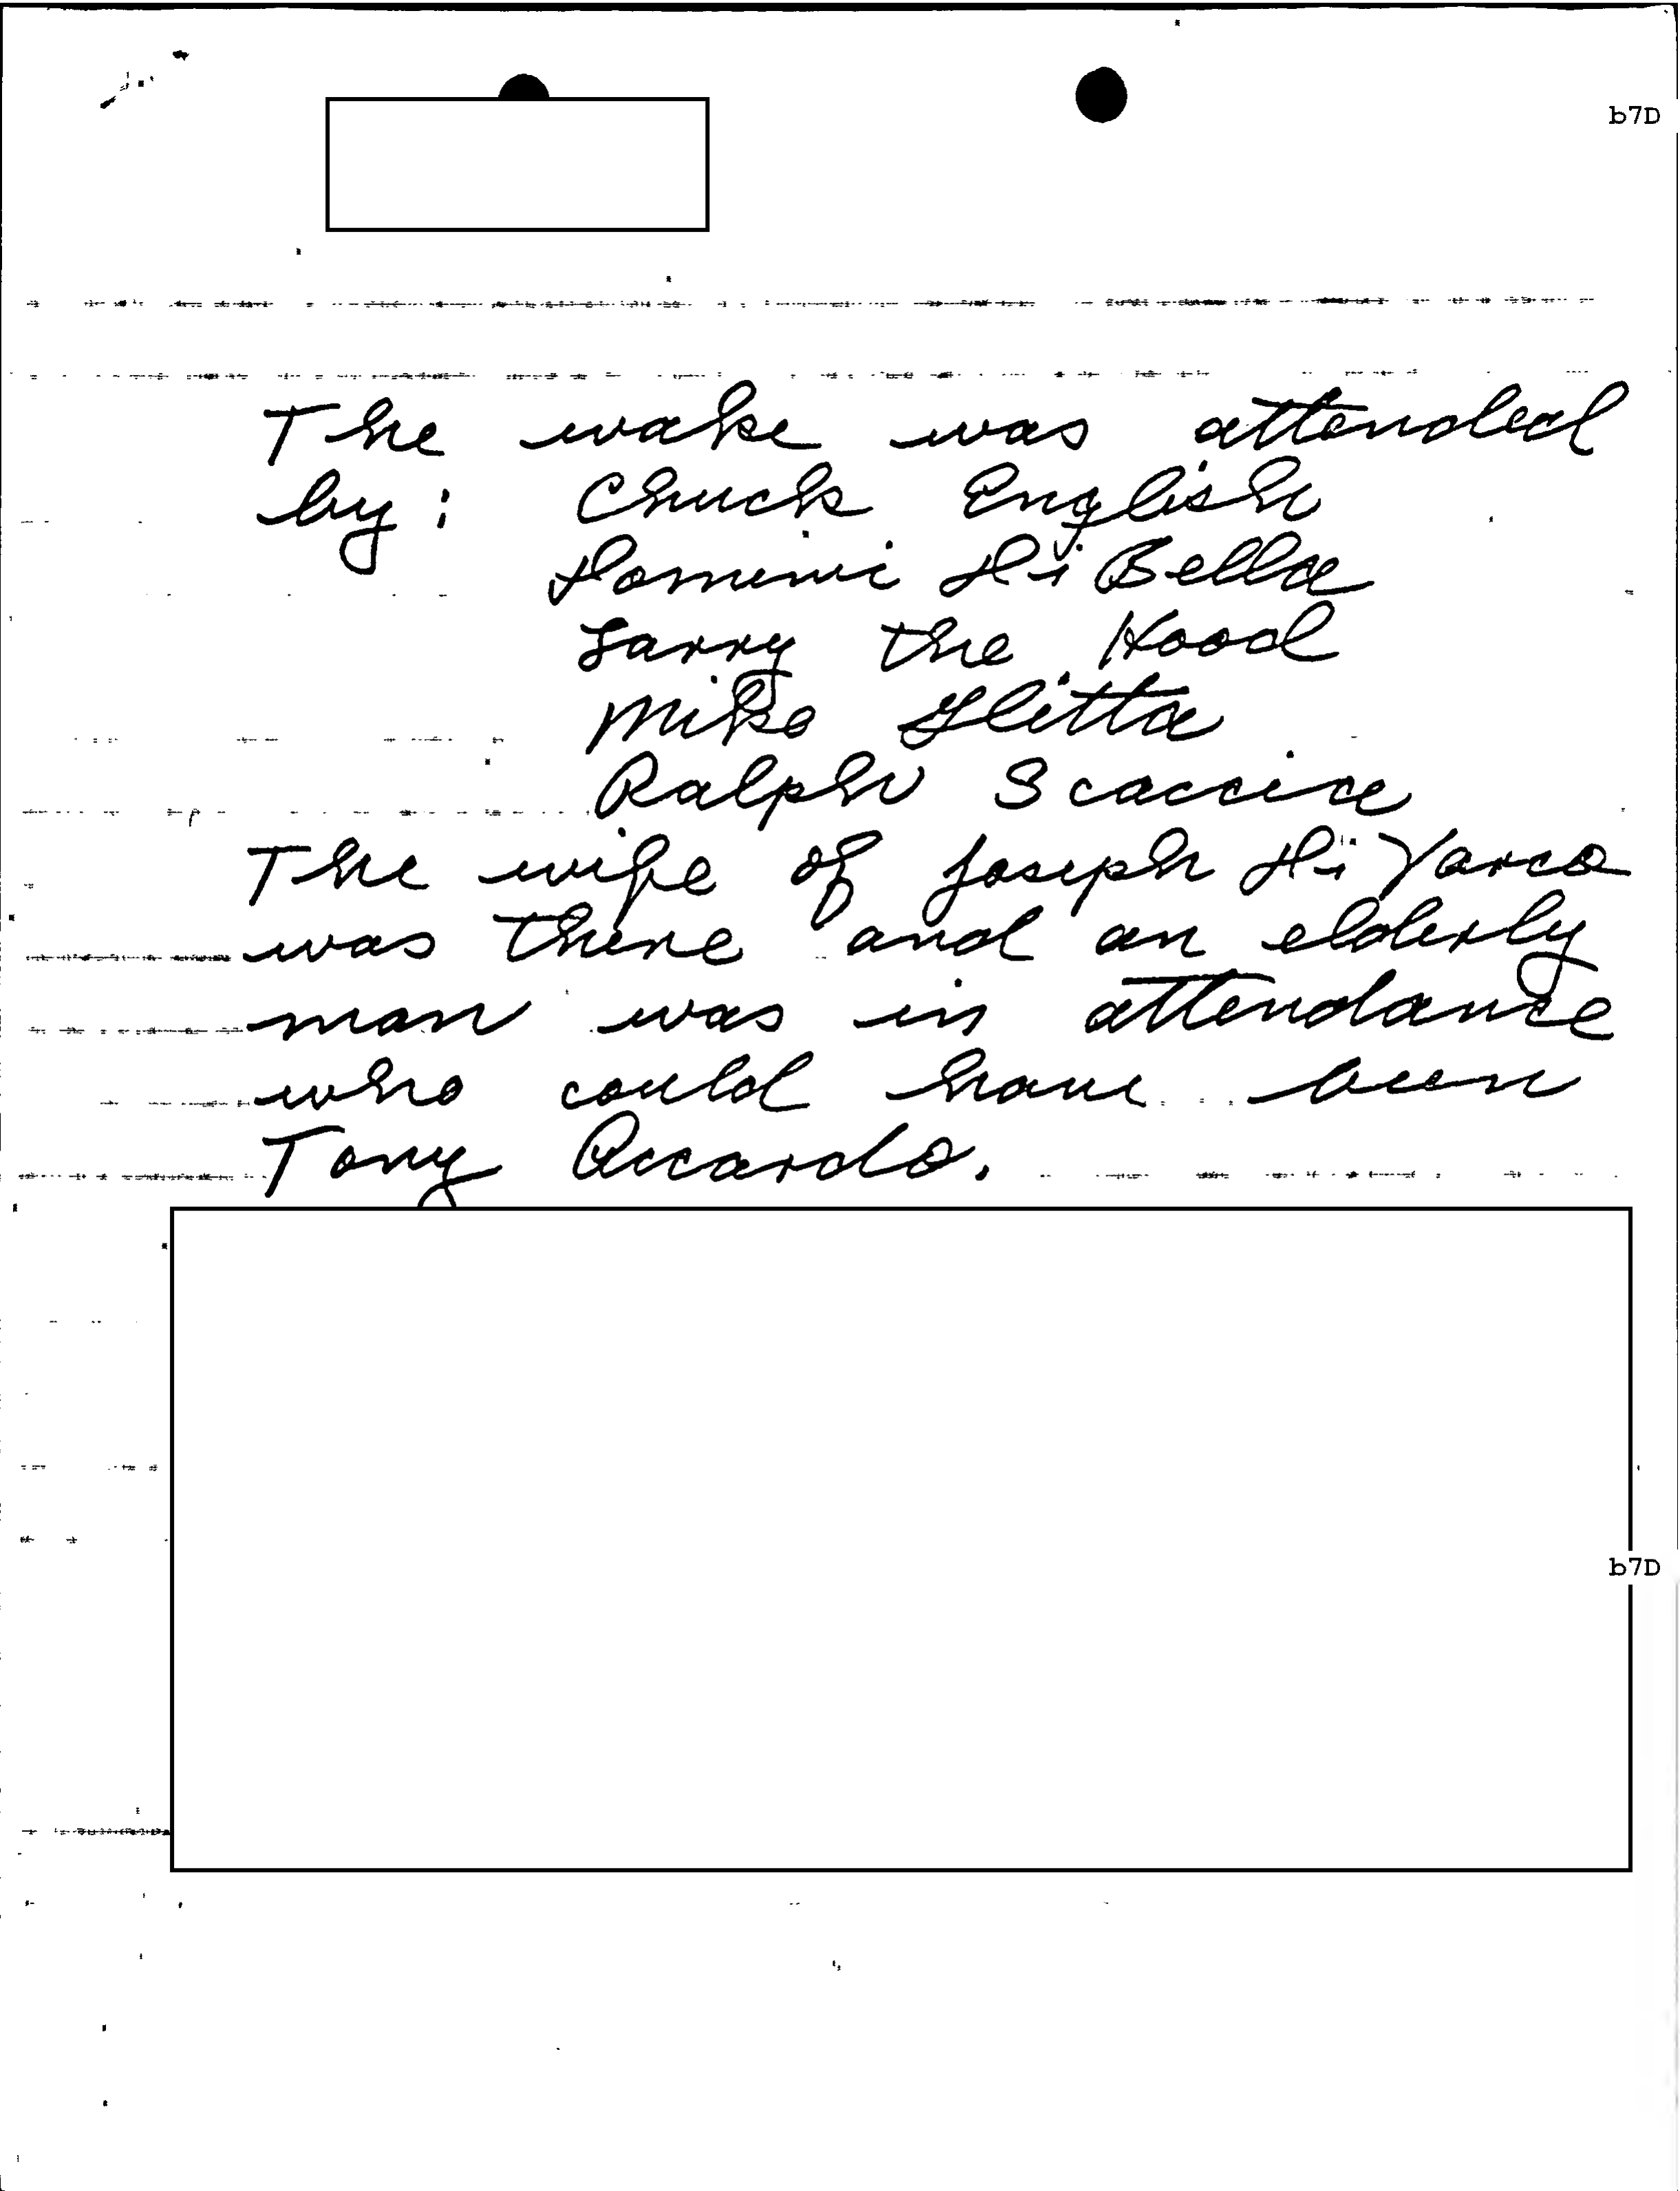 b7D
The wake was attended
by: Chuck English
Dominic Di Bella
Larry the Hood
Mike Glitta
Ralph Scaccia
The wife of Joseph Di Varco
was there and an elderly
man was in attendance
who could have been
Tony Accardo.
b7D